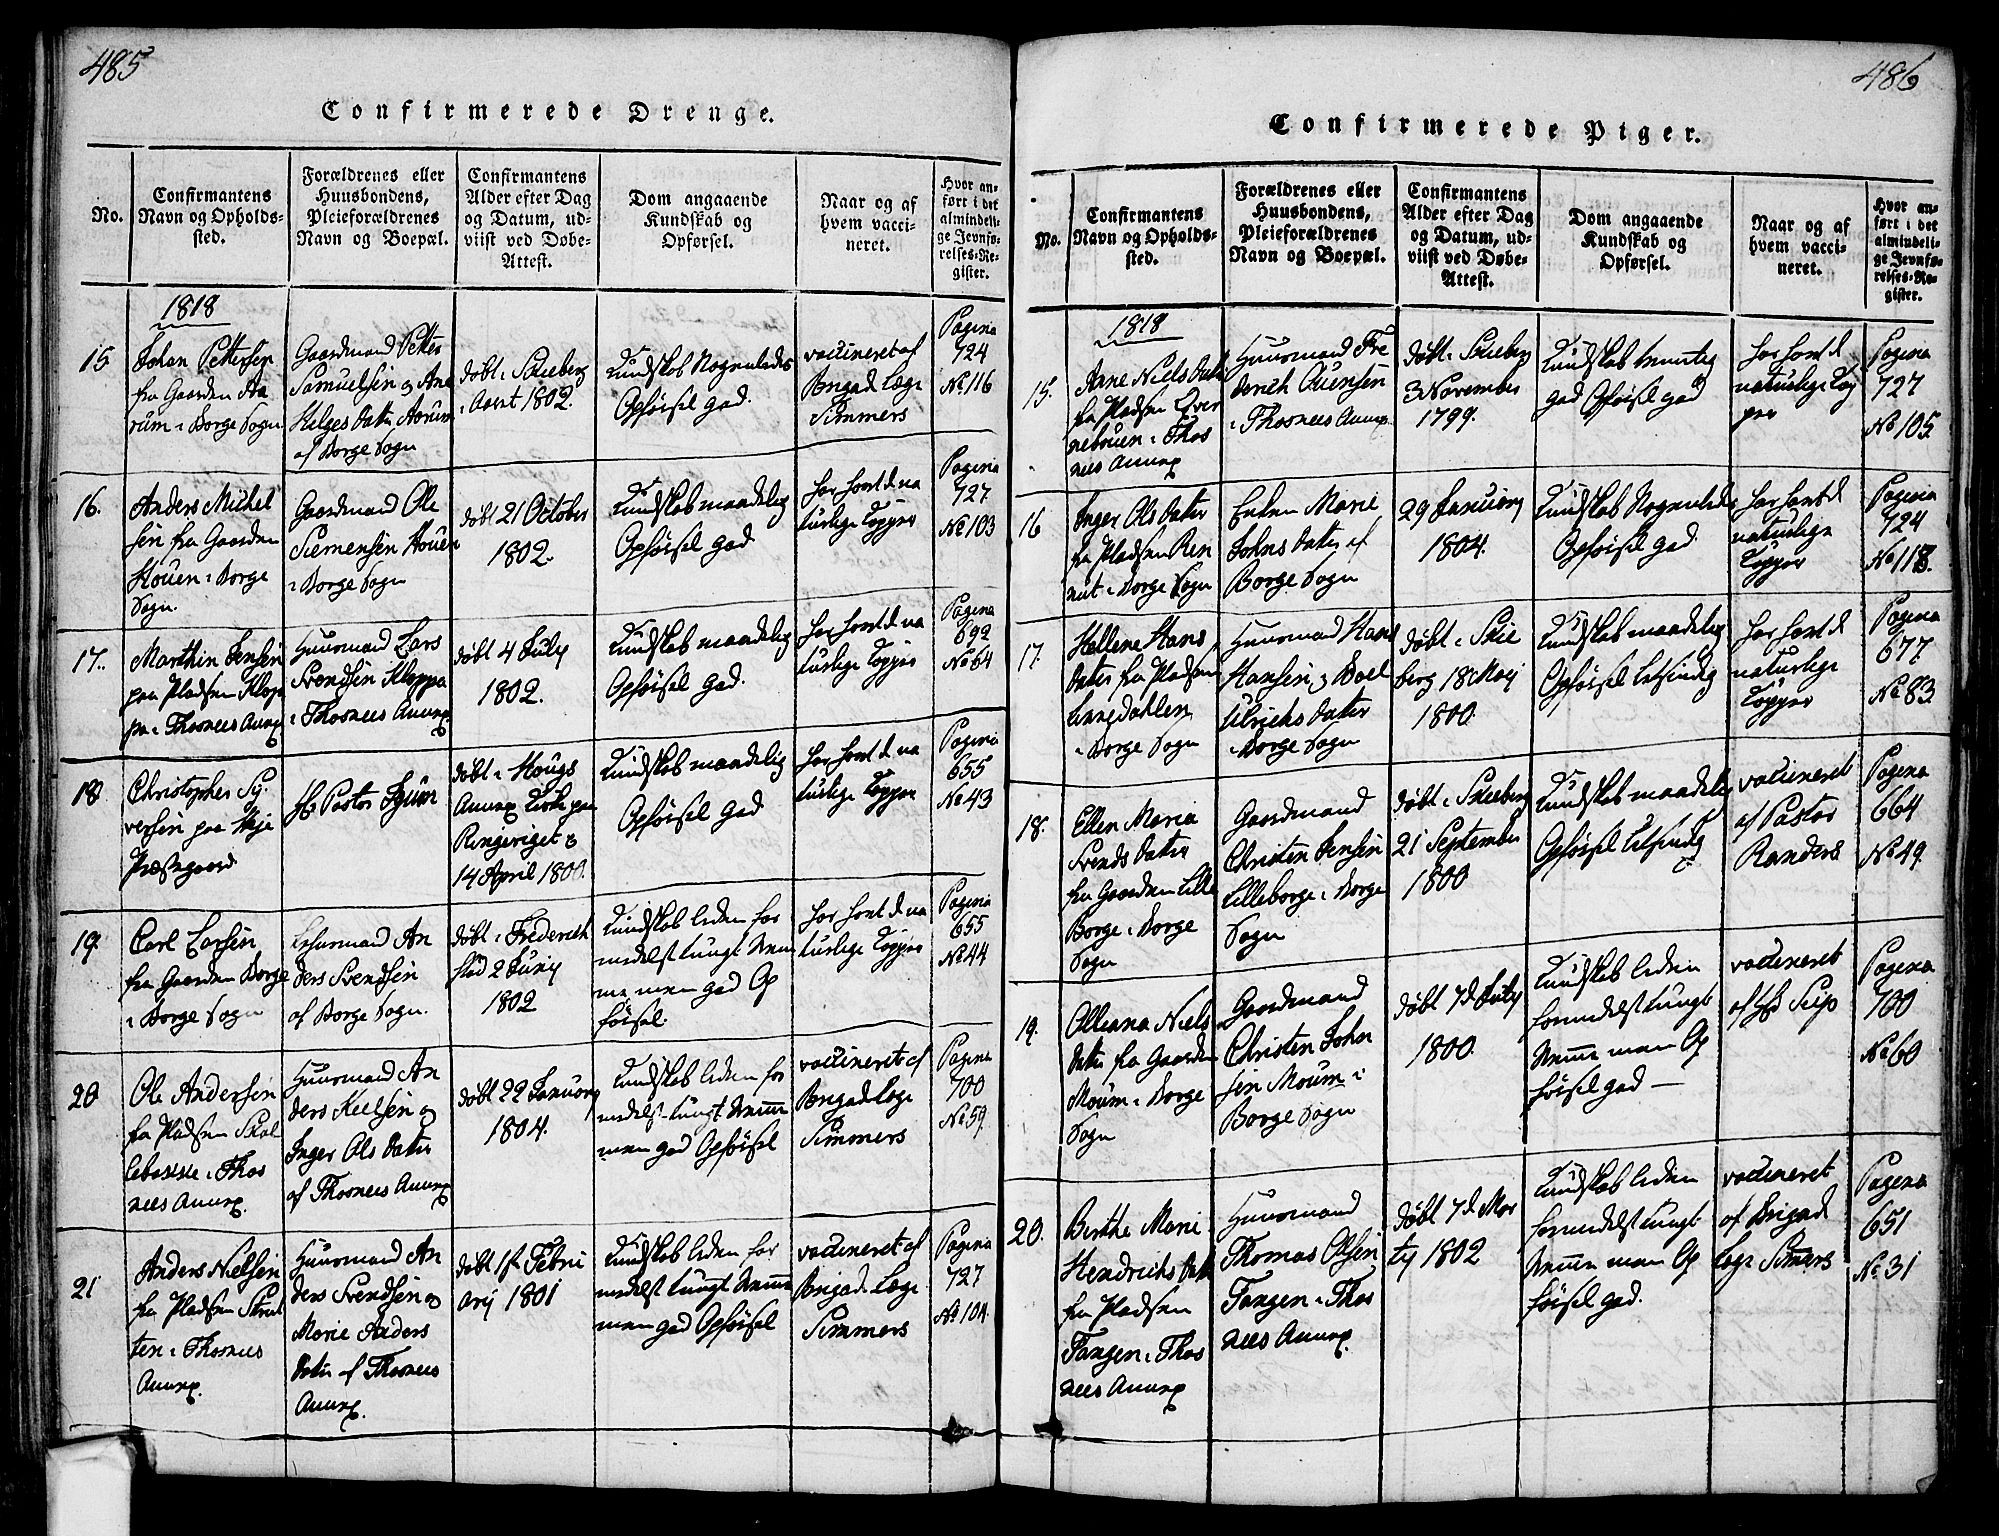 485
Confirmerede Drenge.
No.
Confirmantens
Navn og Opholds-
sted.
Forældrenes eller
Huusbondens,
Pleieforældrenes
Navn og Boepæl.
Confirmantens
Alder efter Dag
og Datum, ud-
viist ved Døbe-
Attest.
Dom angaaende
Kundskab og
Opførsel.
Naar og af
hvem vacci-
neret.
Hvor an-
ført i det
almindeli-
ge Jevnfø-
relses-Re-
gister.
1818
15
Johan Pettersen
fra Gaarden Aa
rum i Borge Sogn
Gaardmand Petter
Samuelsen og Ane
Helges Datter Aarum
af Borge Sogn
døbt i Skieberg
1802.
Kundskab Nogenledes
Opførsel god.
vaccineret af
Brigad Læge
Simmers
Pagina
724
No 116
16.
Anders Michel
sen fra Gaarden
Houen i Borge
Sogn.
Gaardmand Ole
Siemensen Houen
i Borge Sogn
døbt 21 October
1802.
Kundskab maadelig
Opførsel god
har havt de na
turlige Kopper
Pagina
727.
No 103
17.
Marthin Jensen
paa Pladsen Klop
pa i Thosnees Annex
Huusmand Lars
Svendsen Kloppa
i Thosnees Annex
døbt 4 July
1802.
Kundskab maadelig
Opførsel god.
har havt de na
turlige Kopper
Pagina
692
No 64
18
Christopher Sy
versen paa
Præstegaard
Hr Pastor
døbt i Hougs
Annex Kirke paa
Ringeriget
14 April 1800.
Kundskab maadelig
Opførsel god
har havt de na
turlige Kopper
Pagina
655
No 43
19.
Carl Larsen
fra Gaarden Borge
i Borge Sogn
An
ders Svendsen
af Borge Sogn.
døbt i Frederich
stad 2 Juny
1802
Kundskab liden for
medelst tungt Nem
me men god Op
førsel.
har havt de na
turlige Kopper
Pagina
655
No 44
20
Ole Andersen
fra Pladsen Skal
lebakke i Thos
nees Annex.
Huusmand An
ders Keelsen og
Inger Ols Datter
af Thosnees Annex
døbt 22 January
1804.
Kundskab liden for
medelst tungt Nemme
men god Opførsel
vaccineret af
Brigad Læge
Simmers
Pagina
700
No 59.
21
Anders Nielsen
fra Pladsen
ten i Thosnees
Annex.
Huusmand An
ders Svendsen og
Marie Anders
Datter af Thosnees
Annex.
døbt 1st Febru
arij 1801
Kundskab liden for
medelst tungt Nemme
men god Opførsel
vaccineret af
Brigad Læge
Simmers
Pagina
727
No 104.
486
Confirmerede Piger.
No.
Confirmantens
Navn og Opholds-
sted.
Forældrenes eller
Huusbondens,
Pleieforældrenes
Navn og Boepæl.
Confirmantens
Alder efter Dag
og Datum, ud-
viist ved Døbe-
Attest.
Dom angaaende
Kundskab og
Opførsel.
Naar og af
hvem vacci-
neret.
Hvor an-
ført i det
almindeli-
ge Jevnfø-
relses-Re-
gister.
1818
15.
Anne Niels Datter
fra Pladsen Qver
nebroen i Thos
nees Annex
Huusmand Fre
derich
i Thosnees Annex.
døbt i Skieberg
3 November
1799.
Kundskab temmelig
god Opførsel god
har havt de
naturlige Kop
per
Pagina
727
No 105.
16
Inger Ols Datter
fra Pladsen
i Borge Sogn
Enken Marie
Johns Datter af
Borge Sogn
29 January
1804.
Kundskab Nogenledes
Opførsel god.
har havt de
naturlige
Kopper
Pagina
724
No 118.
17.
Hellene Hans
Datter fra Pladsen
i Borge Sogn
Huusmand Hans
Hansen og Boel
Ulrichs Datter
i Borge Sogn
døbt i Skie
berg 18 May
1800.
Kundskab maadelig
Opførsel
har havt de
naturlige
Kopper
Pagina
677
No 83.
18.
Ellen Maria
Svends Datter
fra Gaarden Lille
Borge i Borge
Sogn
Gaardmand
Christen Jensen
Lilleborge i Borge
Sogn
døbt i Skieberg
21 September
1800
Kundskab maadelig
Opførsel
vaccineret
af Pastor
Randers
Pagina
664
No 49.
19.
Olleana Niels
Datter fra Gaarden
Moum i Borge
Sogn
Gaardmand
Christen John
sen Moum i
Borge Sogn
døbt 7d July
1800.
Kundskab liden
formedelst tungt
Nemme men Op
førsel god —
vaccineret
af Hr Seip
Pagina
700
No 60
20.
Berthe Marie
Hendrichs Datter
fra Pladsen
Tangen i Thos
nees Annex
Huusmand
Thomas Olsen
Tangen i Thos
nees Annex.
døbt 7d Mar
ty 1802
Kundskab liden
formedelst tungt
Nemme men Op
førsel god.
vaccineret
af Brigad
Læge Simers
Pagina
651
No 31